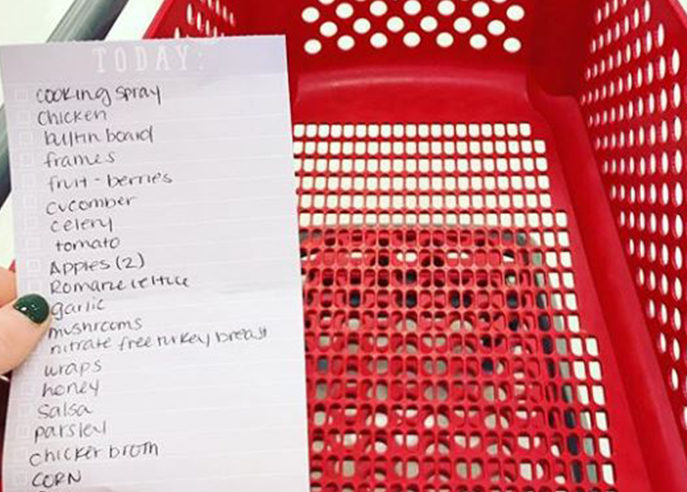 TODAY:
cooking spray
Chicken
bulltin board
frames
fruit - berries
cucomber
celery
tomato
Apples (2)
Romane lettuce
garlic
mushrooms
nitrate free turkey breast
wraps
honey
Salsa
parsley
chicken broth
CORN